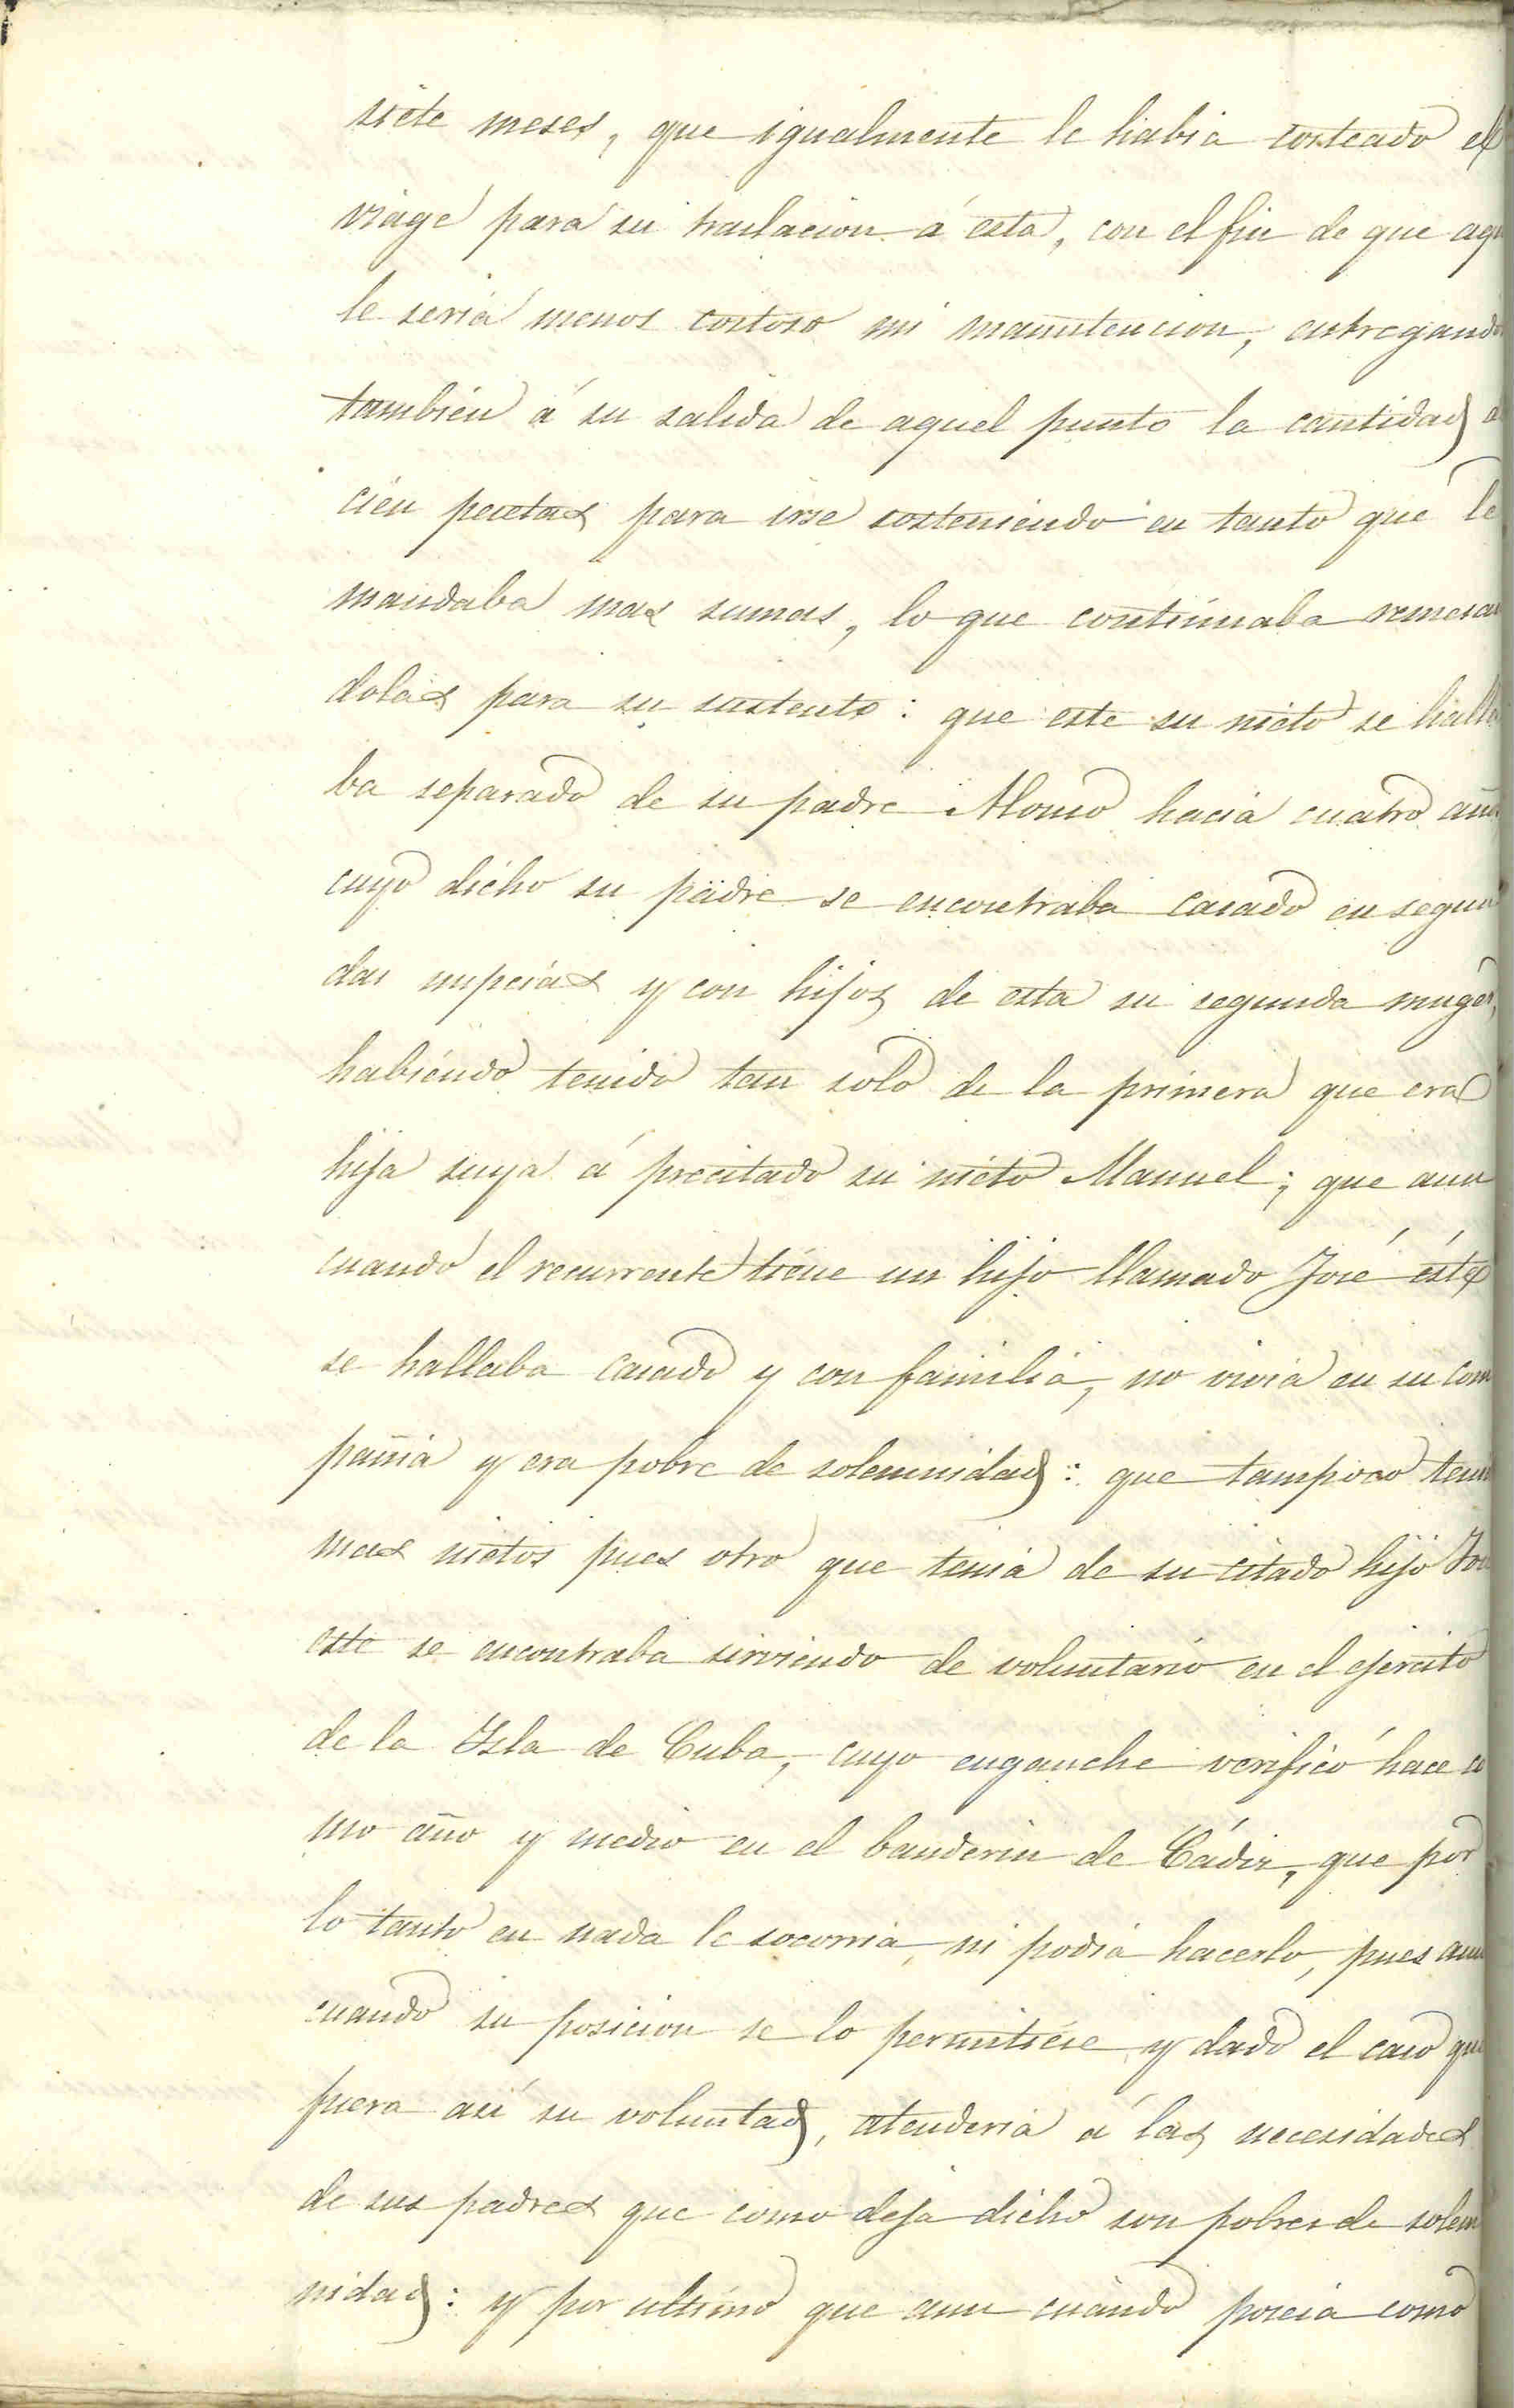 siete meses, que igualmente le habia costeado el
viage para su traslacion á esta, con el fin de que aqu
le seria menos costoso mi manutencion, entregando
tambien á su salida de aquel punto la cantidad d
cien pecetas para irse sosteniendo en tanto que le
mandaba mas sumas, lo que continuaba remesan
dolas para su sustento: que este su nieto se halla
ba separado de su padre Alonso hacia cuatro año
cuyo dicho su padre se encontraba casado en segun
das nupcias y con hijos de esta su segunda muger,
habiendo tenido tan solo de la primera que era
hija suya á precitado su nieto Manuel; que aun
cuando el recurrente tiene un hijo llamado José éste
se hallaba casado y con familia, no vivia en su com
pañia y era pobre de solemnidad: que tampoco teni
mas nietos pues otro que tenia de su citado hijo Jos
este se encontraba sirviendo de voluntario en el ejercito
de la Isla de Cuba, cuyo enganche verificó hace co
mo año y medio en el banderin de Cádiz, que por
lo tanto en nada le socorria, ni podia hacerlo, pues aun
cuando su posicion se lo permitiese y dado el caso que
fuera asi su voluntad, atenderia á las necesidades
de sus padres que como deja dicho son pobres de solem
nidad: y por ultimo que aun cuando poseia como